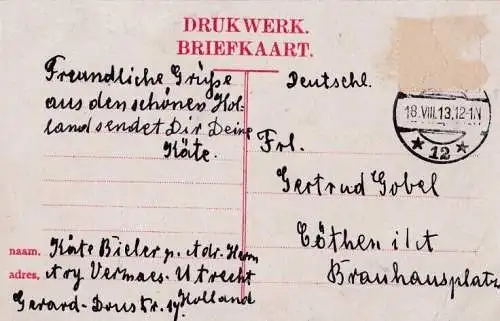 DRUKWERK.
BRIEFKAART.
Freundliche Grüße
aus den schönen Hol-
land sendet Dir Deine
Käte.
naam. Käte Bieler p. Adr. Herrn
adres. Ary Vermaes-Utrecht
Gerard-Doustr. 17 Holland
Deutschl.
18.VIII.13.12-1.N
* 12 *
Frl.
Gertrud Göbel
Cöthen i/A
Brauhausplatz